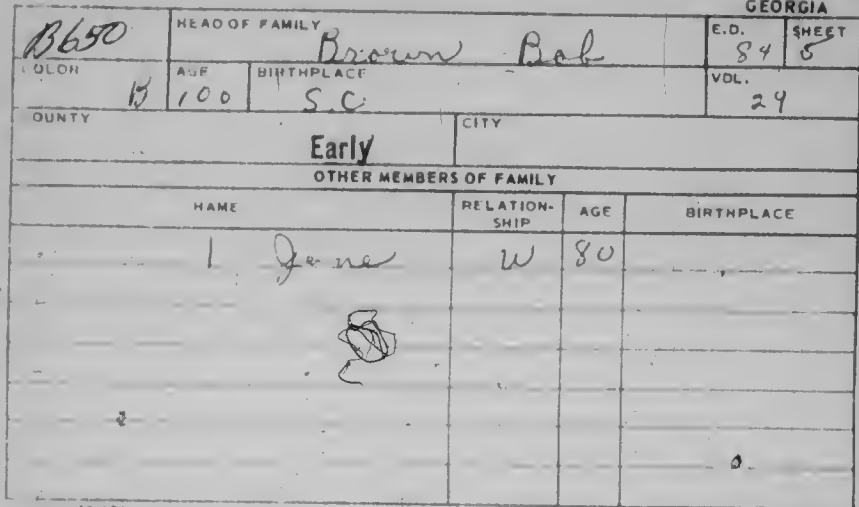 GEORGIA
B650 HEAD OF FAMILY Brown Bob E.D. 84 SHEET 5
COLOR B AGE 100 BIRTHPLACE S.C. VOL. 24
OUNTY Early CITY
OTHER MEMBERS OF FAMILY
NAME RELATION-SHIP AGE BIRTHPLACE
1 Jane W 80